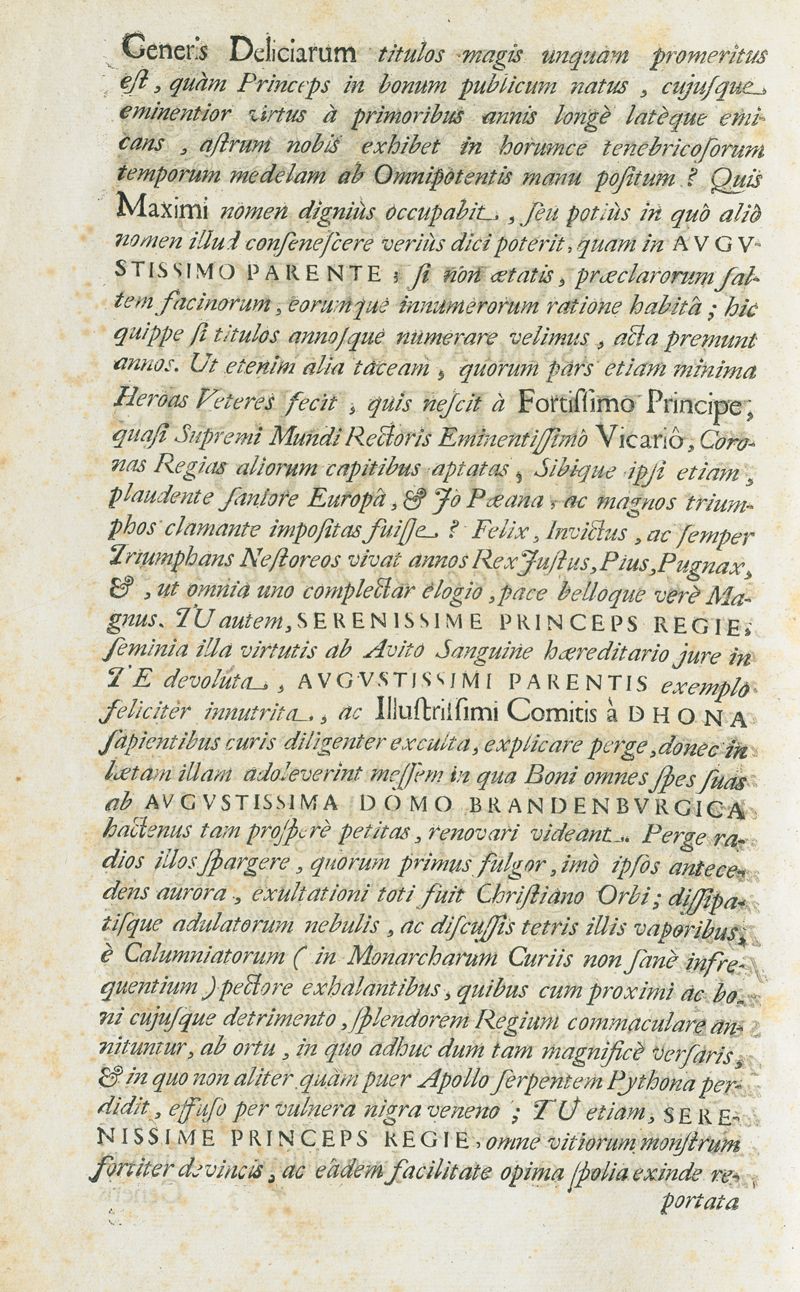 Generis Deliciarum titulos magis unquàm promeritus
eſt, quàm Princeps in bonum publicum natus, cujuſque
eminentior virtus à primoribus annis longè latèque emi-
cans, aſtrum nobis exhibet in horumce tenebricoſorum
temporum medelam ab Omnipotentis manu poſitum? Quis
Maximi nomen digniùs occupabit, ſeu potiùs in quô aliô
nomen illud conſeneſcere veriùs dici poterit, quam in AVGV-
STISSIMO PARENTE; ſi non ætatis, præclarorum ſal-
tem facinorum, eorumque innumerorum ratione habitâ; hic
quippe ſi titulos annoſque numerare velimus, acta premunt
annos. Ut etenim alia taceam, quorum pars etiam minima
Heroas Veteres fecit, quis neſcit à Fortiſſimo Principe,
quaſi Supremi Mundi Rectoris Eminentiſſimô Vicariô, Coro-
nas Regias aliorum capitibus aptatas, Sibique ipſi etiam,
plaudente ſaniore Europâ, & Jò Pæana, ac magnos trium-
phos clamante impoſitas fuiſſe? Felix, Invictus, ac ſemper
Triumphans Neſtoreos vivat annos Rex Juſtus, Pius, Pugnax,
&, ut omnia uno complectar elogio, pace belloque verè Ma-
gnus. TU autem, SERENISSIME PRINCEPS REGIE,
ſeminia illa virtutis ab Avito Sanguine hæreditario jure in
TE devoluta, AVGVSTISSIMI PARENTIS exemplô
feliciter innutrita, ac Illuſtriſſimi Comitis à DHONA
ſapientibus curis diligenter exculta, explicare perge, donec in
lætam illam adoleverint meſſem in qua Boni omnes ſpes ſuas
ab AVGVSTISSIMA DOMO BRANDENBVRGICA
hactenus tam proſperè petitas, renovari videant. Perge ra-
dios illos ſpargere, quorum primus fulgor, imò ipſos antece-
dens aurora, exultationi toti fuit Chriſtiano Orbi; diſſipa-
tiſque adulatorum nebulis, ac diſcuſſis tetris illis vaporibus,
è Calumniatorum (in Monarcharum Curiis non ſanè infre-
quentium) pectore exhalantibus, quibus cum proximi ac bo-
ni cujuſque detrimento, ſplendorem Regium commaculare an-
nituntur, ab ortu, in quo adhuc dum tam magnificè verſaris,
& in quo non aliter quàm puer Apollo ſerpentem Pythona per-
didit, effuſo per vulnera nigra veneno; TU etiam, SERE-
NISSIME PRINCEPS REGIE, omne vitiorum monſtrum
fortiter devincis, ac eâdem facilitate opima ſpolia exinde re-
portata